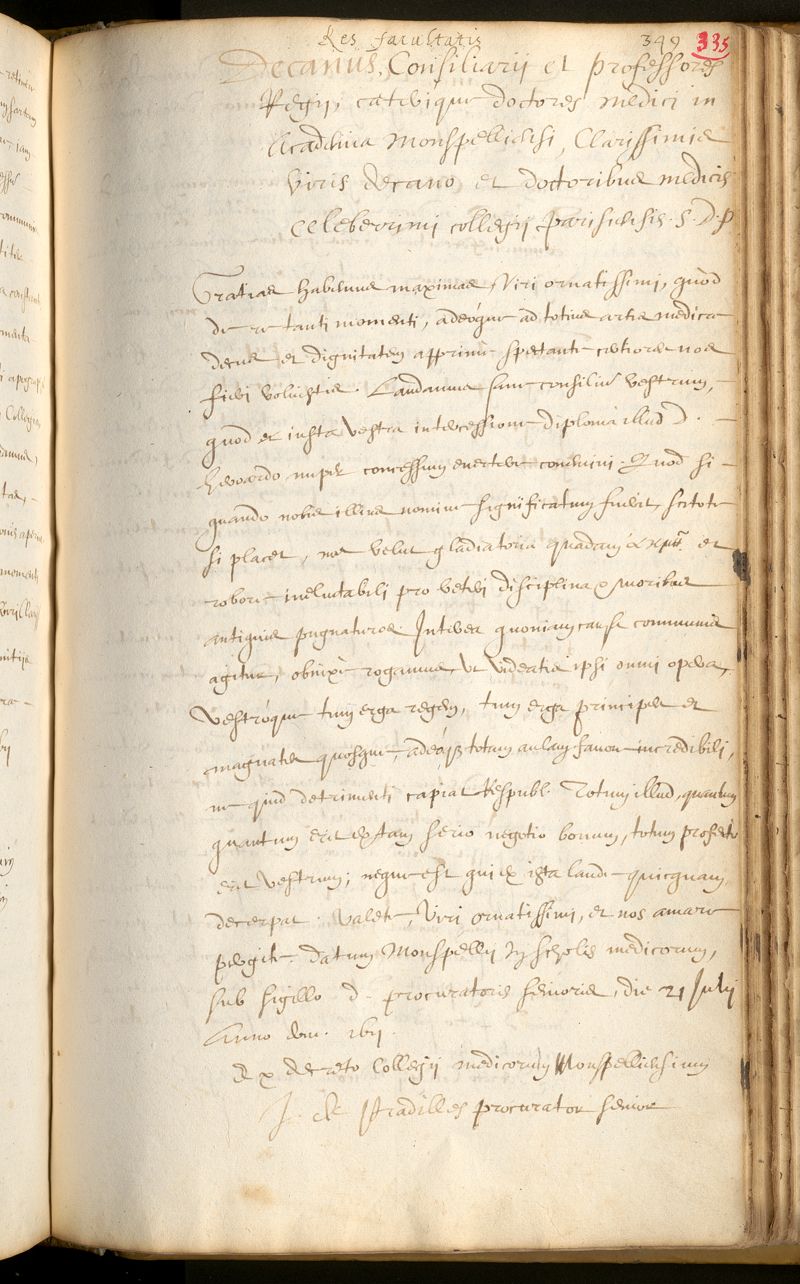 Res facultatis 349 335
Decanus, Consiliarij et professores
Regij, caeterique doctores medici in
Academia Monspelliensi, Clarissimis
Viris Decano, et doctoribus medicis
celeberrimi collegij parisiensis. S. D. P
Gratias habemus maximas, Viri ornatissimi, quòd
de re tanti momenti, adeóque ad totius artis medicae
decus et dignitatem apprimè spectante certiores nos
fieri voluistis. Laudamus sane consiliũ vestrum,
quod et iusta vestra intercessione diploma illud D.
nuper concessum everti. Quod si
quando nobis illius nomine significatum fuerit, scitote
si placet, nos velut gladiatoria quadam et
robore ineluctabili pro veteri disciplina & moribus
antiquis pugnaturos. Interea quoniam causa communis
agitur, obnixè rogamus, ut videatis ipsi omni opera,
vestróque tum erga regem, tum erga principes et
magnates quosque, adeóq₃ totam aulam favore incredibili,
ne quid detrimenti capiat Respubl. Totum illud, quantum
quantum erit ex tam serio negotio bonum, totum profecto
erit vestrum; neque est qui ex ista laude quicquam
decerpat. Valete, Viri ornatissimi, et nos amare
pergite. datum Monspelij in scholis medicorum,
sub sigillo D. procuratoris senioris, die 21 Julij
Anno dom. 1611.
Ex decreto Collegij medicorum Monspelliensium
J. de Pradilles procurator senior